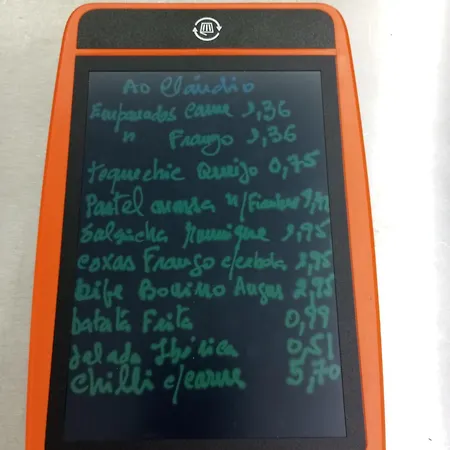 Ao Cláudio
Empanadas Carne 1,36
" Frango 1,36
Tequechic Queijo 0,75
Pastel massa /Fiambre
Salsicha 1,95
coxas Frango c/cebola 1,95
Bife Bovino Angus 2,95
batata Frita 0,99
Salada Ibérica 0,51
Chilli c/carne 5,70